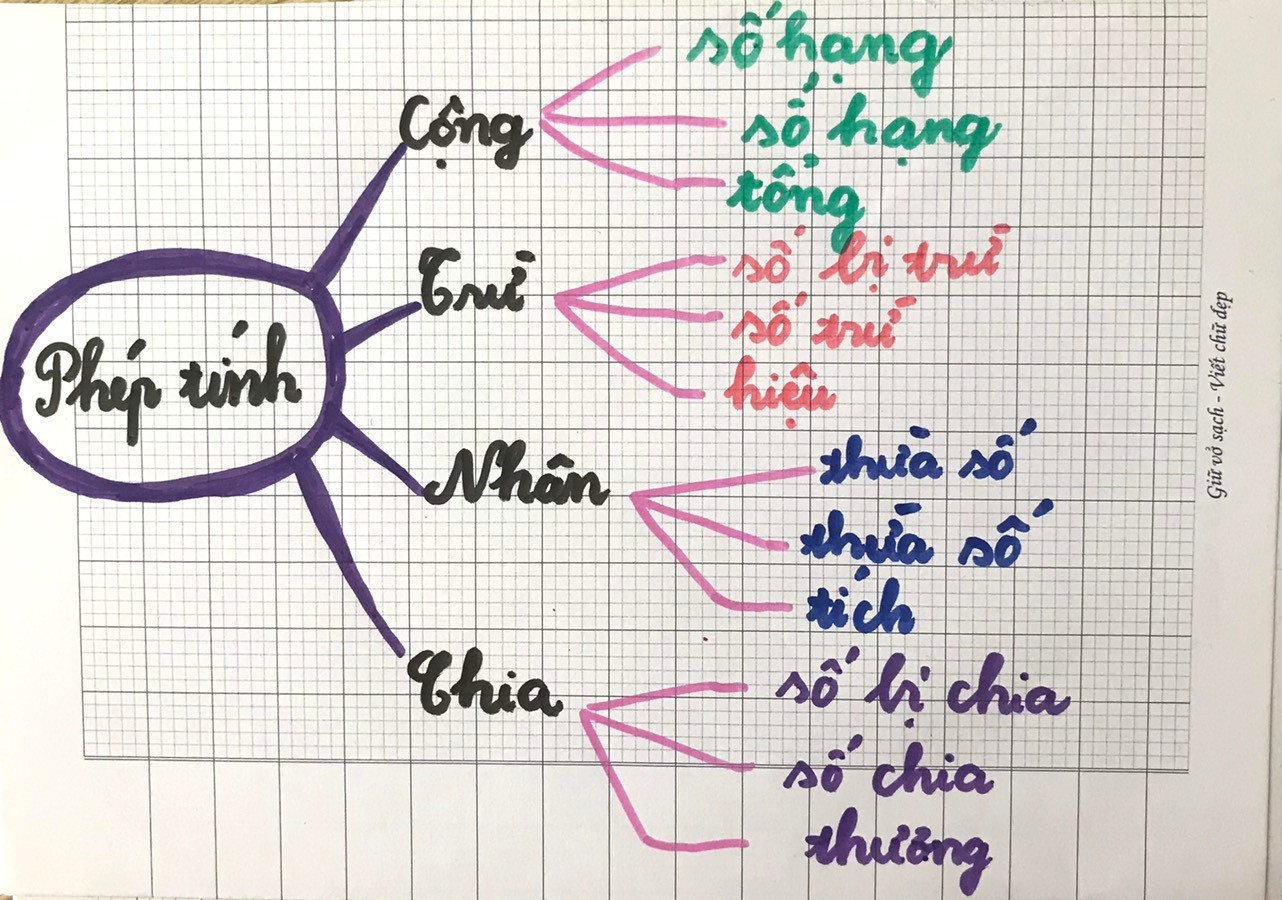 Phép tính
Cộng
số hạng
số hạng
tổng
Trừ
số bị trừ
số trừ
hiệu
Nhân
thừa số
thừa số
tích
Chia
số bị chia
số chia
thương
Giữ vở sạch - Viết chữ đẹp